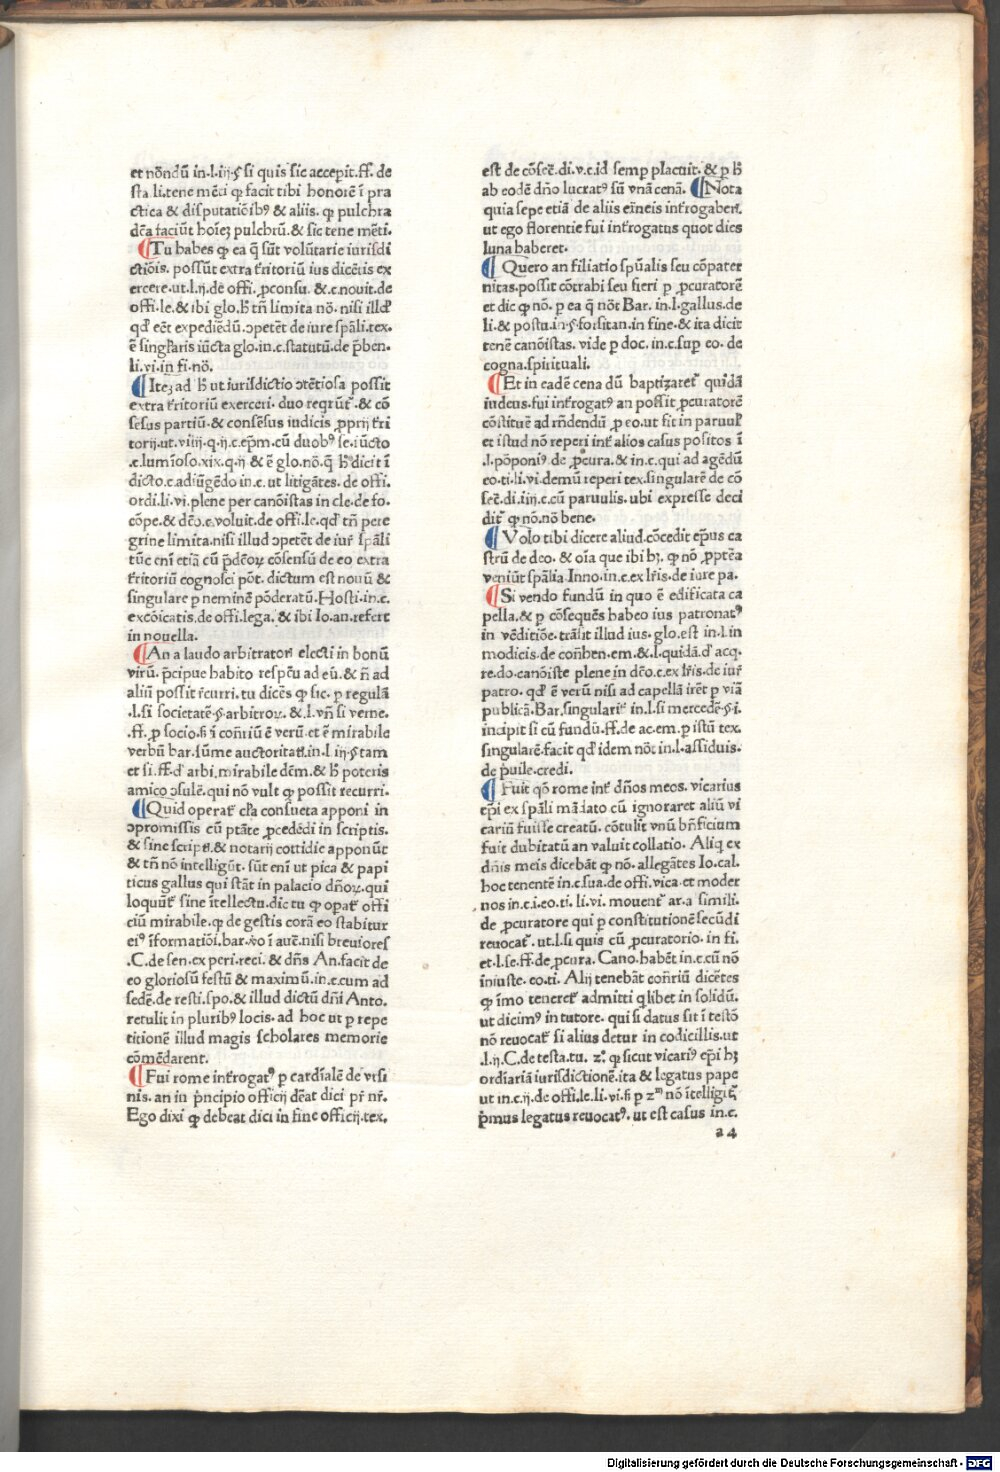 et nōndū in.l.iij.§ si quis sic accepit.ff. de
sta li.tene mēti qꝫ facit tibi honorē ī pra
ctica & disputatiōibꝰ & aliis. qꝫ pulchra
dēa faciūt hoīeꝫ pulchrū. & sic tene mēti.
¶Tu habes qꝫ ea q̄ sūt volūtarie iurisdi
ctiōis. possūt extra t̄ritoriū ius dicētis ex
ercere.ut.l.ij.de offi. ꝓconsu. &.c.nouit.de
offi.le.& ibi glo.h̄ tn̄ limita nō. nisi illd̄
qd̄ eēt expediēdū .ꝯpetēt de iure spāli.tex.
ē singl̄aris iūcta glo.in.c.statutū.de p̄ben.
li.vi.in fi.nō.
¶Iteꝫ ad h̄ ut iurisdictio ꝯtētiosa possit
extra t̄ritoriū exerceri. duo reqrūt̄.& cō
sesus partiū.& consēsus iudicis ꝓprij t̄ri
torij.ut.viiij.q.ij.c.ep̄m.cū duobꝰ se.iūcto
.c.lumīoso.xix.q.ij & ē glo.nō.q̄ h̄ dicit ī
dicto.c.adiūgēdo in.c. ut litigātes. de offi.
ordi.li.vi.plene per canōistas in cle.de fo.
cōpe.& dēo.c.voluit.de offi.le.qd̄ tn̄ pere
grine limita.nisi illud ꝯpetēt de iur̄ spāli
tūc eni etiā cū p̄deōꝝ cōsensū de eo extra
t̄ritoriū cognosci pōt. dictum est nouū &
singulare p neminē pōderatū.Hosti.in.c.
excōicatis.de offi.lega. & ibi Io.an.refert
in nouella.
¶An a laudo arbitratorꝫ electi in bonū
virū. p̄cipue habito respc̄tu ad eū.& n̄ ad
aliū possit r̄curri. tu dicēs qꝫ sic. p regulā
.l.si societatē.§.arbitroꝝ. &.l.vn̄ si verne.
.ff. ꝓ socio.h̄ ī con̄riū ē verū.et ē mirabile
verbū bar.sūme auctoritatꝫ.in.l iij.§ tam
et si.ff.d̄ arbi.mirabile dēm.& h̄ poteris
amico ꝯsulē.qui nō vult qꝫ possit recurri.
¶Quid operat̄ cl̄a consueta apponi in
ꝯpromissis cū ptāte ꝓcedēdi in scriptis.
& sine scriptꝫ.& notarij cottidie apponūt
& tn̄ nō intelligūt. sūt eni ut pica & papi
ticus gallus qui stāt in palacio dn̄oꝝ.qui
loquūt̄ sine ītellectu.dic tu qꝫ opat̄ offi
ciū mirabile.qꝫ de gestis corā eo stabitur
eiꝰ īformatiōi.bar.v̇o ī autē.nisi breuiores
.C.de sen.ex peri.reci. & dn̄s An.facit de
eo gloriosū festū & maximū.in.c.cum ad
sedē.de resti.spo.& illud dictū dn̄i Anto.
retulit in pluribꝰ locis. ad hoc ut p repe
titionē illud magis scholares memorie
cōmēdarent.
¶Fui rome int̄rogatꝰ p cardīalē de vrsi
nis. an in p̄ncipio officij dēat dici pr̄ nr̄.
Ego dixi qꝫ debeat dici in fine officij.tex.
est de cōsec̄.di.v.c.id semp placuit. & p h̄
ab eodē dn̄o lucratꝰ sū vnā cenā. ¶Nota
quia sepe etiā de aliis eīneis int̄rogaberꝫ.
ut ego florentie fui int̄rogatus quot dies
luna haberet.
¶Quero an filiatio sp̄ualis seu cōpater
nitas.possit cōtrahi seu fieri p ꝓcuratorē
et dic qꝫ nō. p ea q̄ nōt Bar. in.l.gallus.de
li.& postu.in.§.forsitan.in fine.& ita dicit
tenē canōistas. vide p doc. in.c.sup eo. de
cogna.spirituali.
¶Et in eadē cena dū baptizaret̄ quidā
iudeus.fui int̄rogatꝰ an possit ꝓcuratorē
cōstituē ad rn̄dendū ꝓ eo.ut fit in paruul̄
et istud nō reperi int̄ alios casus positos ī
.l.pōponiꝰ. de ꝓcura. & in.c.qui ad agēdū
eo.ti.li.vi.demū reperi tex.singularē de cō
sec̄.di.iiij.c.cū paruulis. ubi expresse deci
dit̄ qꝫ nō.nō bene.
¶Volo tibi dicere aliud.cōcedit ep̄us ca
strū de deo. & oīa que ibi hꝫ. qꝫ nō ꝓptēa
veniūt spālia.Inno.in.c.ex lr̄is.de iure pa.
¶Si vendo fundū in quo ē edificata ca
pella.& p cōsequēs habeo ius patronatꝰ
in vēditiōe.trāsit illud ius.glo.est in.l.in
modicis.de con̄hen.em.&.l.quidā.d̄ acq.
re.do.canōiste plene in dēo.c.ex lr̄is.de iur̄
patro. qd̄ ē verū nisi ad capellā irēt p viā
publicā.Bar.singularit̄ in.l.si mercedē.§.i.
incipit si cū fundū.ff.de ac.em.p istū tex.
singularē.facit qd̄ idem nōt in.l.assiduis.
de p̄uile.credi.
¶Fuit qō rome int̄ dn̄os meos. vicarius
ep̄i ex spāli mādato cū ignoraret aliū vi
cariū fuisse creatū. cōtulit vnū bn̄ficium
fuit dubitatū an valuit collatio. Aliq ex
dn̄is meis dicebāt qꝫ nō. allegātes Io.cal.
hoc tenentē in.c.sua.de offi.vica.et moder
nos in.c.i.eo.ti. li.vi. mouent̄ ar.a simili.
de ꝓcuratore qui p constitutionē secūdi
reuocat̄. ut.l.si quis cū ꝓcuratorio. in fi.
et.l.se.ff.de ꝓcura. Cano.habēt in.c.cū nō
iniuste.eo.ti. Alij tenebāt con̄riū dicētes
qꝫ īmo teneret̄ admitti qlibet in solidū.
ut dicimꝰ in tutore. qui si datus sit ī testō
nō reuocat̄ si alius detur in codicillis.ut
.l.ij.C.de testa.tu. z̄. qꝫ sicut vicariꝰ ep̄i hꝫ
ordiariā iurisdictionē.ita & legatus pape
ut in.c.ij.de offi.le.li.vi.h̄ p zᵐ nō ītelligit̄
p̄mus legatus reuocatꝰ. ut est casus in.c.
a4
Digitalisierung gefördert durch die Deutsche Forschungsgemeinschaft - DFG